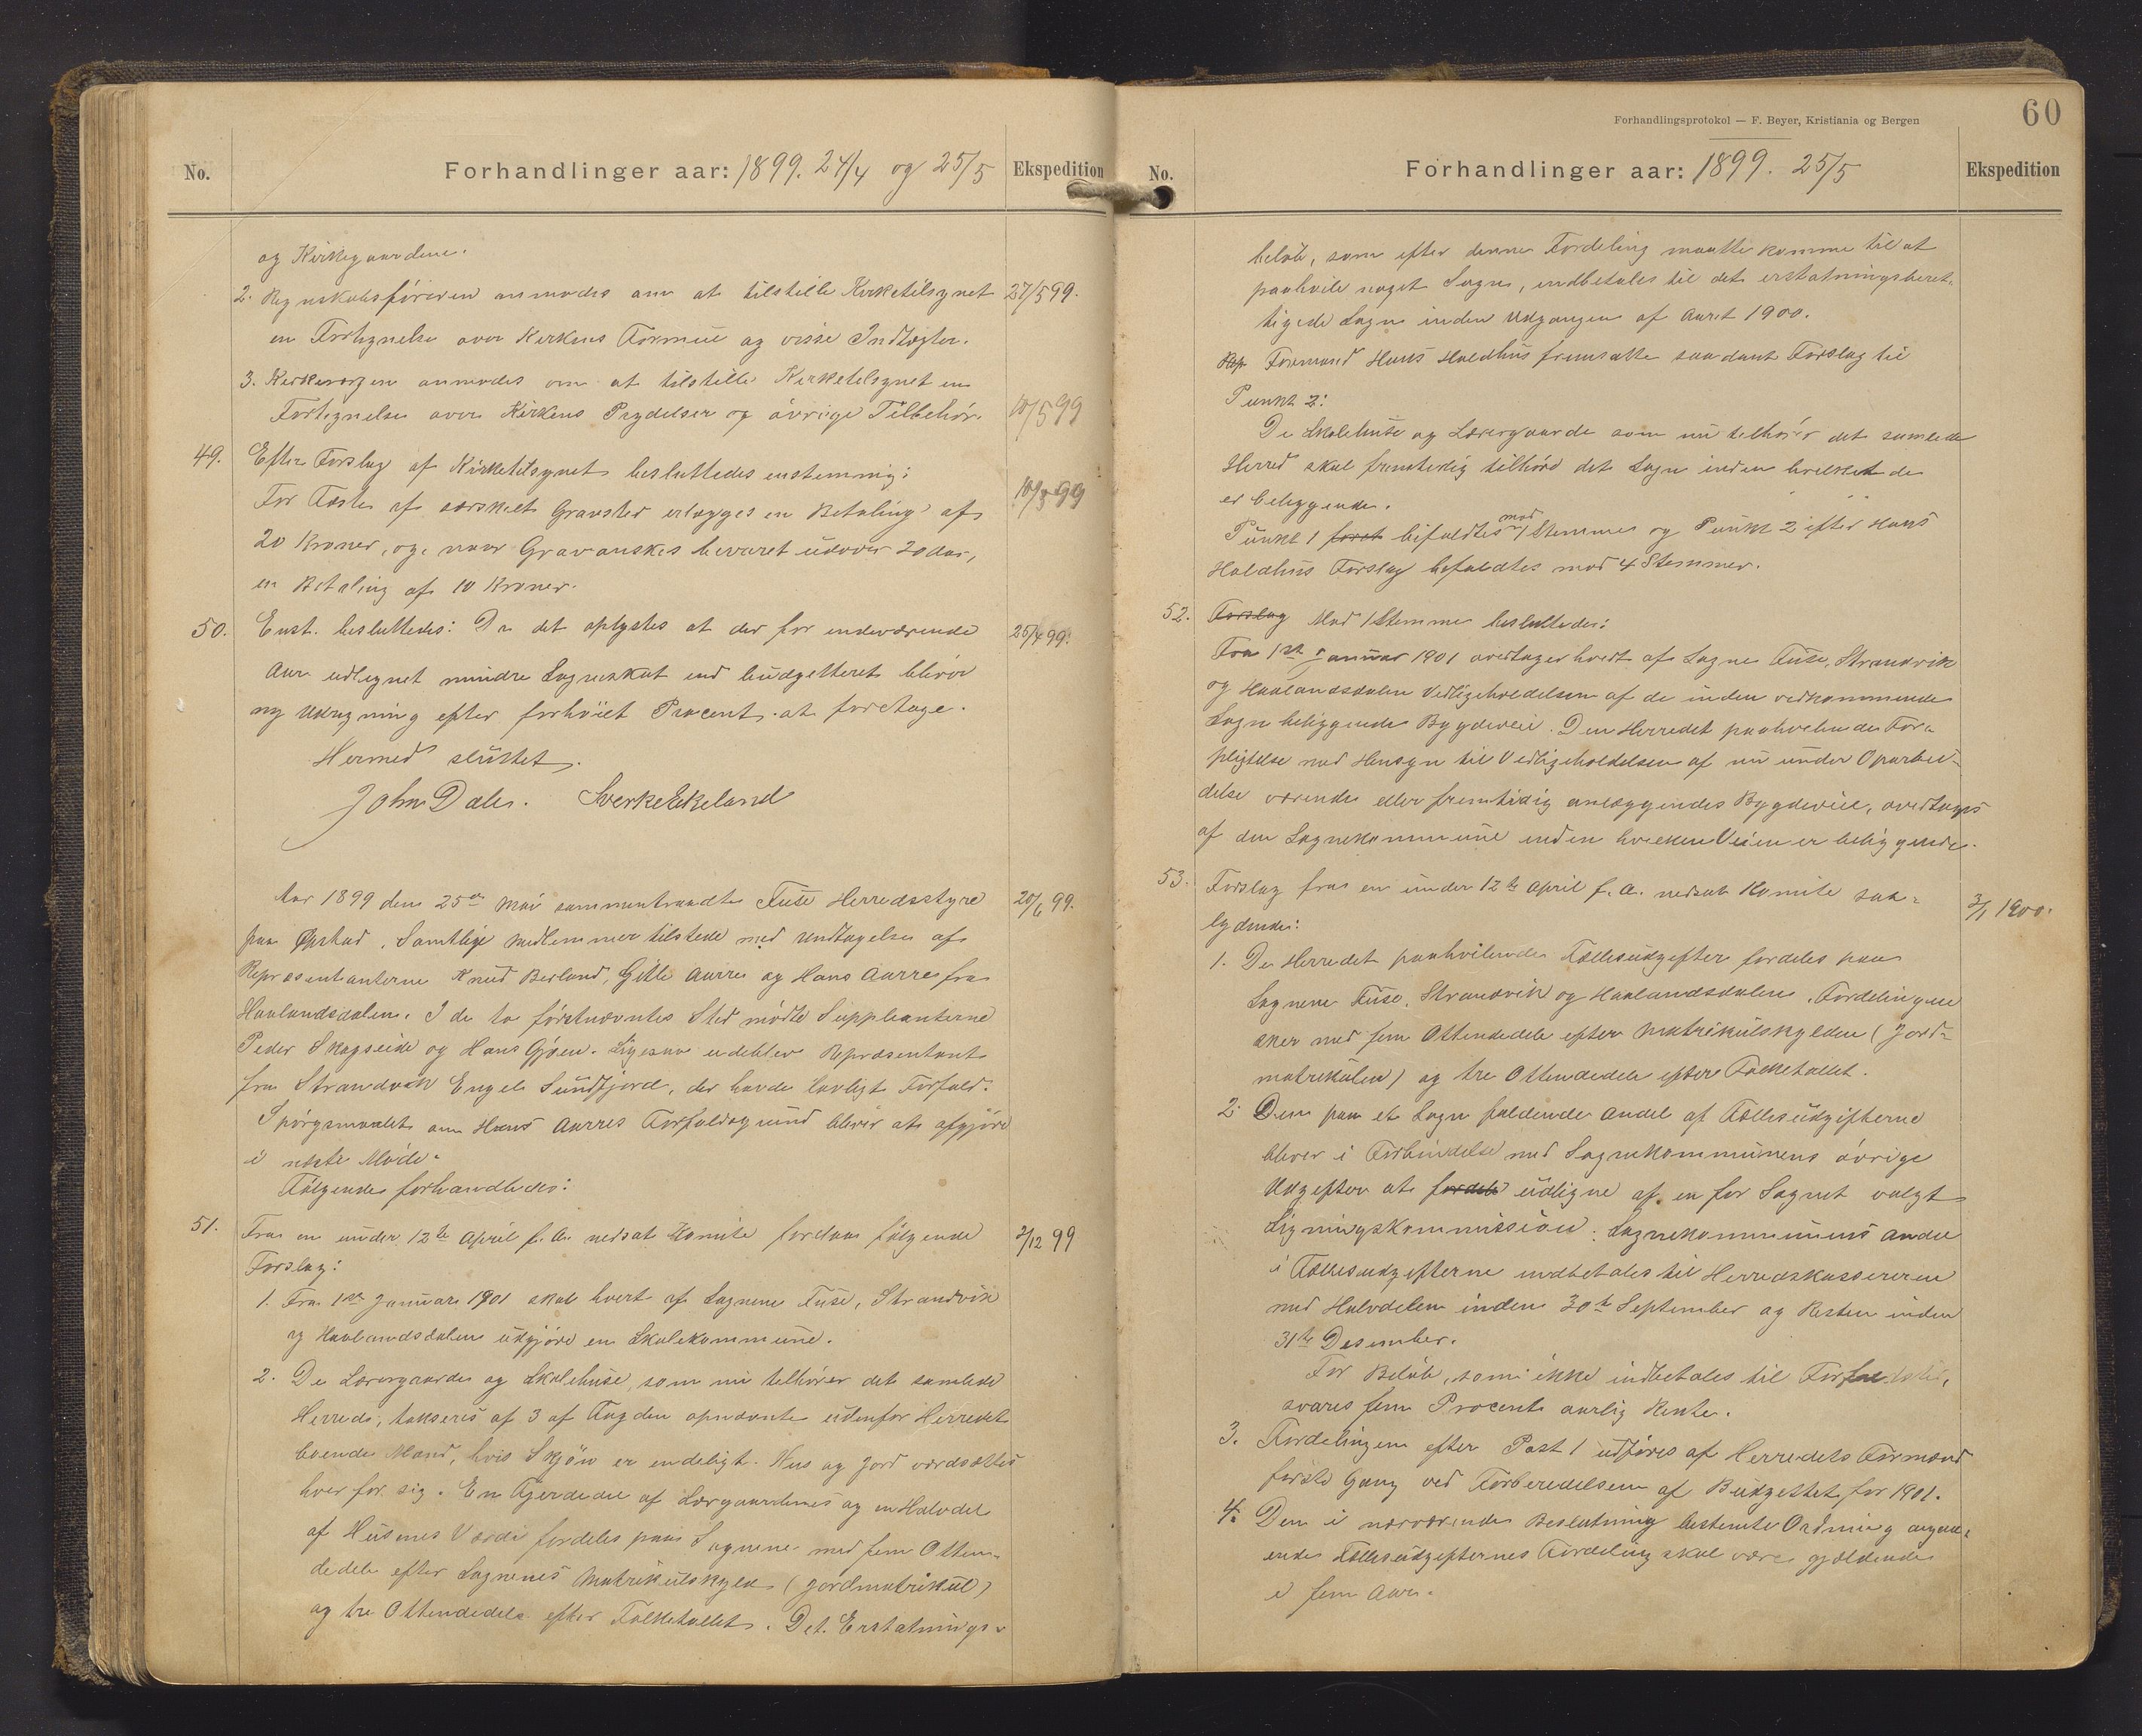 No.
Forhandlinger aar: 1899. 24/4 og 25/5
Ekspedition
og Kirkegaardene.
2. Regnskabsföreren anmodes om at tilstille Kirketilsynet 27/5 99.
en Fortegnelse over Kirkens Formue og visse Indtægter.
3. Kirkeværgen anmodes om at tilstille Kirketilsynet en
Fortegnelse over Kirkens Prydelser og övrige Tilbehör. 10/5 99
49. Efter Forslag af Kirketilsynet besluttedes enstemmig:
For Fæste af særskilt Gravsted erlægges en Betaling af 10/5 99
20 Kroner, og, naar Gravönskes bevaret udover 20 Aar,
en Betaling af 10 Kroner.
50. Enst. besluttedes: Da det oplystes at der for indeværende 25/4 99.
Aar udlignet mindre Sogneskat end budgetteret bliver
ny Udregning efter forhöiet Procent at foretage.
Hermed sluttet.
John Dale. Sverke Eikeland
Aar 1899 den 25de Mai sammentraadte Fuse Herredsstyre 20/6 99.
paa Øpstad. Samtlige Medlemmer tilstede med Undtagelse af
Repræsentanterne Knud Berland, Gitle Aurre og Hans Aurre fra
Haalandsdalen. I de to förstnævntes Sted mödte Suppleanterne
Peder Skogseide og Hans Gjöen. Ligesaa udeblev Repræsentant
fra Strandvik Engel Sundfjord, der havde lovligt Forfald.
Spörgsmaalet om Hans Aurres Forfaldsgrund bliver at afgjöre
i næste Möde.
Fölgende forhandledes:
51. Fra en under 12te April f. A. nedsat Komite forelaa fölgende 2/12 99
Forslag:
1. Fra 1ste Januar 1901 skal hvert af Sognene Fuse, Strandvik
og Haalandsdalen udgjöre en Skolekommune.
2. De Lærergaarde og Skolehuse, som nu tilhörer det samlede
Herred, takseres af 3 af Fogden opnævnte udenfor Herredet
boende Mænd, hvis Skjön er endeligt. Hus og Jord værdsættes
hver for sig. En Fjerdedel af Lærgaardenes og en Halvdel
af Husenes Værdi fordeles paa Sognene med fem Otten-
dedele efter Sognenes Matrikulskyld (Jordmatrikul)
og tre Ottendedele efter Folketallet. Det Erstatnings-
Forhandlingsprotokol — F. Beyer, Kristiania og Bergen
60
No.
Forhandlinger aar: 1899. 25/5
Ekspedition
belöb, som efter denne Fordeling maatte komme til at
paahvile noget Sogn, indbetales til det erstatningsberet-
tigede Sogn inden Udgangen af Aaret 1900.
Rep Formand Hans Holdhus fremsatte saadant Forslag til
Punkt 2:
De Skolehuse og Lærergaarde som nu tilhörer det samlede
Herred skal fremtidig tilhöre det Sogn inden hvilket de
er beliggende.
Punkt 1 foret bifaldtes mod 1 Stemme og Punkt 2 efter Hans
Holdhus Forslag bifaldtes mod 4 Stemmer.
52. Forslag Mod 1 Stemme besluttedes:
Fra 1ste Januar 1901 overtager hvert af Sogne Fuse, Strandvik
og Haalandsdalen Vedligeholdelsen af de inden vedkommende
Sogn beliggende Bygdeveie. Den Herredet paahvilende For-
pligtelse med Hensyn til Vedligeholdelsen af nu under Oparbei-
delse værende eller fremtidig anlæggendes Bygdeveie, overtages
af den Sognekommune inden hvilken Veien er beliggende.
53. Forslag fra en under 12te April f. A. nedsat Komite saa- 3/1 1900.
lydende:
1. De Herredet paahvilende Fællesudgifter fordeles paa
Sognene Fuse, Strandvik og Haalandsdalen. Fordelingen
sker med fem Ottendedele efter Matrikulskylden (Jord-
matrikulen) og tre Ottendedele efter Folketallet.
2. Den paa et Sogn faldende Andel af Fællesudgifterne
bliver i Forbindelse med Sognekommunens övrige
Udgifter at fordele udligne af en for Sognet valgt
Ligningskommission. Sognekommunens Andel
i Fællesudgifterne indbetales til Herredskassereren
med Halvdelen inden 30te September og Resten inden
31te Desember.
For Belöb, som ikke indbetales til Forfaldstid,
svares fem Procent aarlig Rente.
3. Fordelingen efter Post 1 udföres af Herredets Formænd
förste Gang ved Forberedelsen af Budgettet for 1901.
4. Den i nærværende Beslutning bestemte Ordning angaa-
ende Fællesudgifternes Fordeling skal være gjældende
i fem Aar.